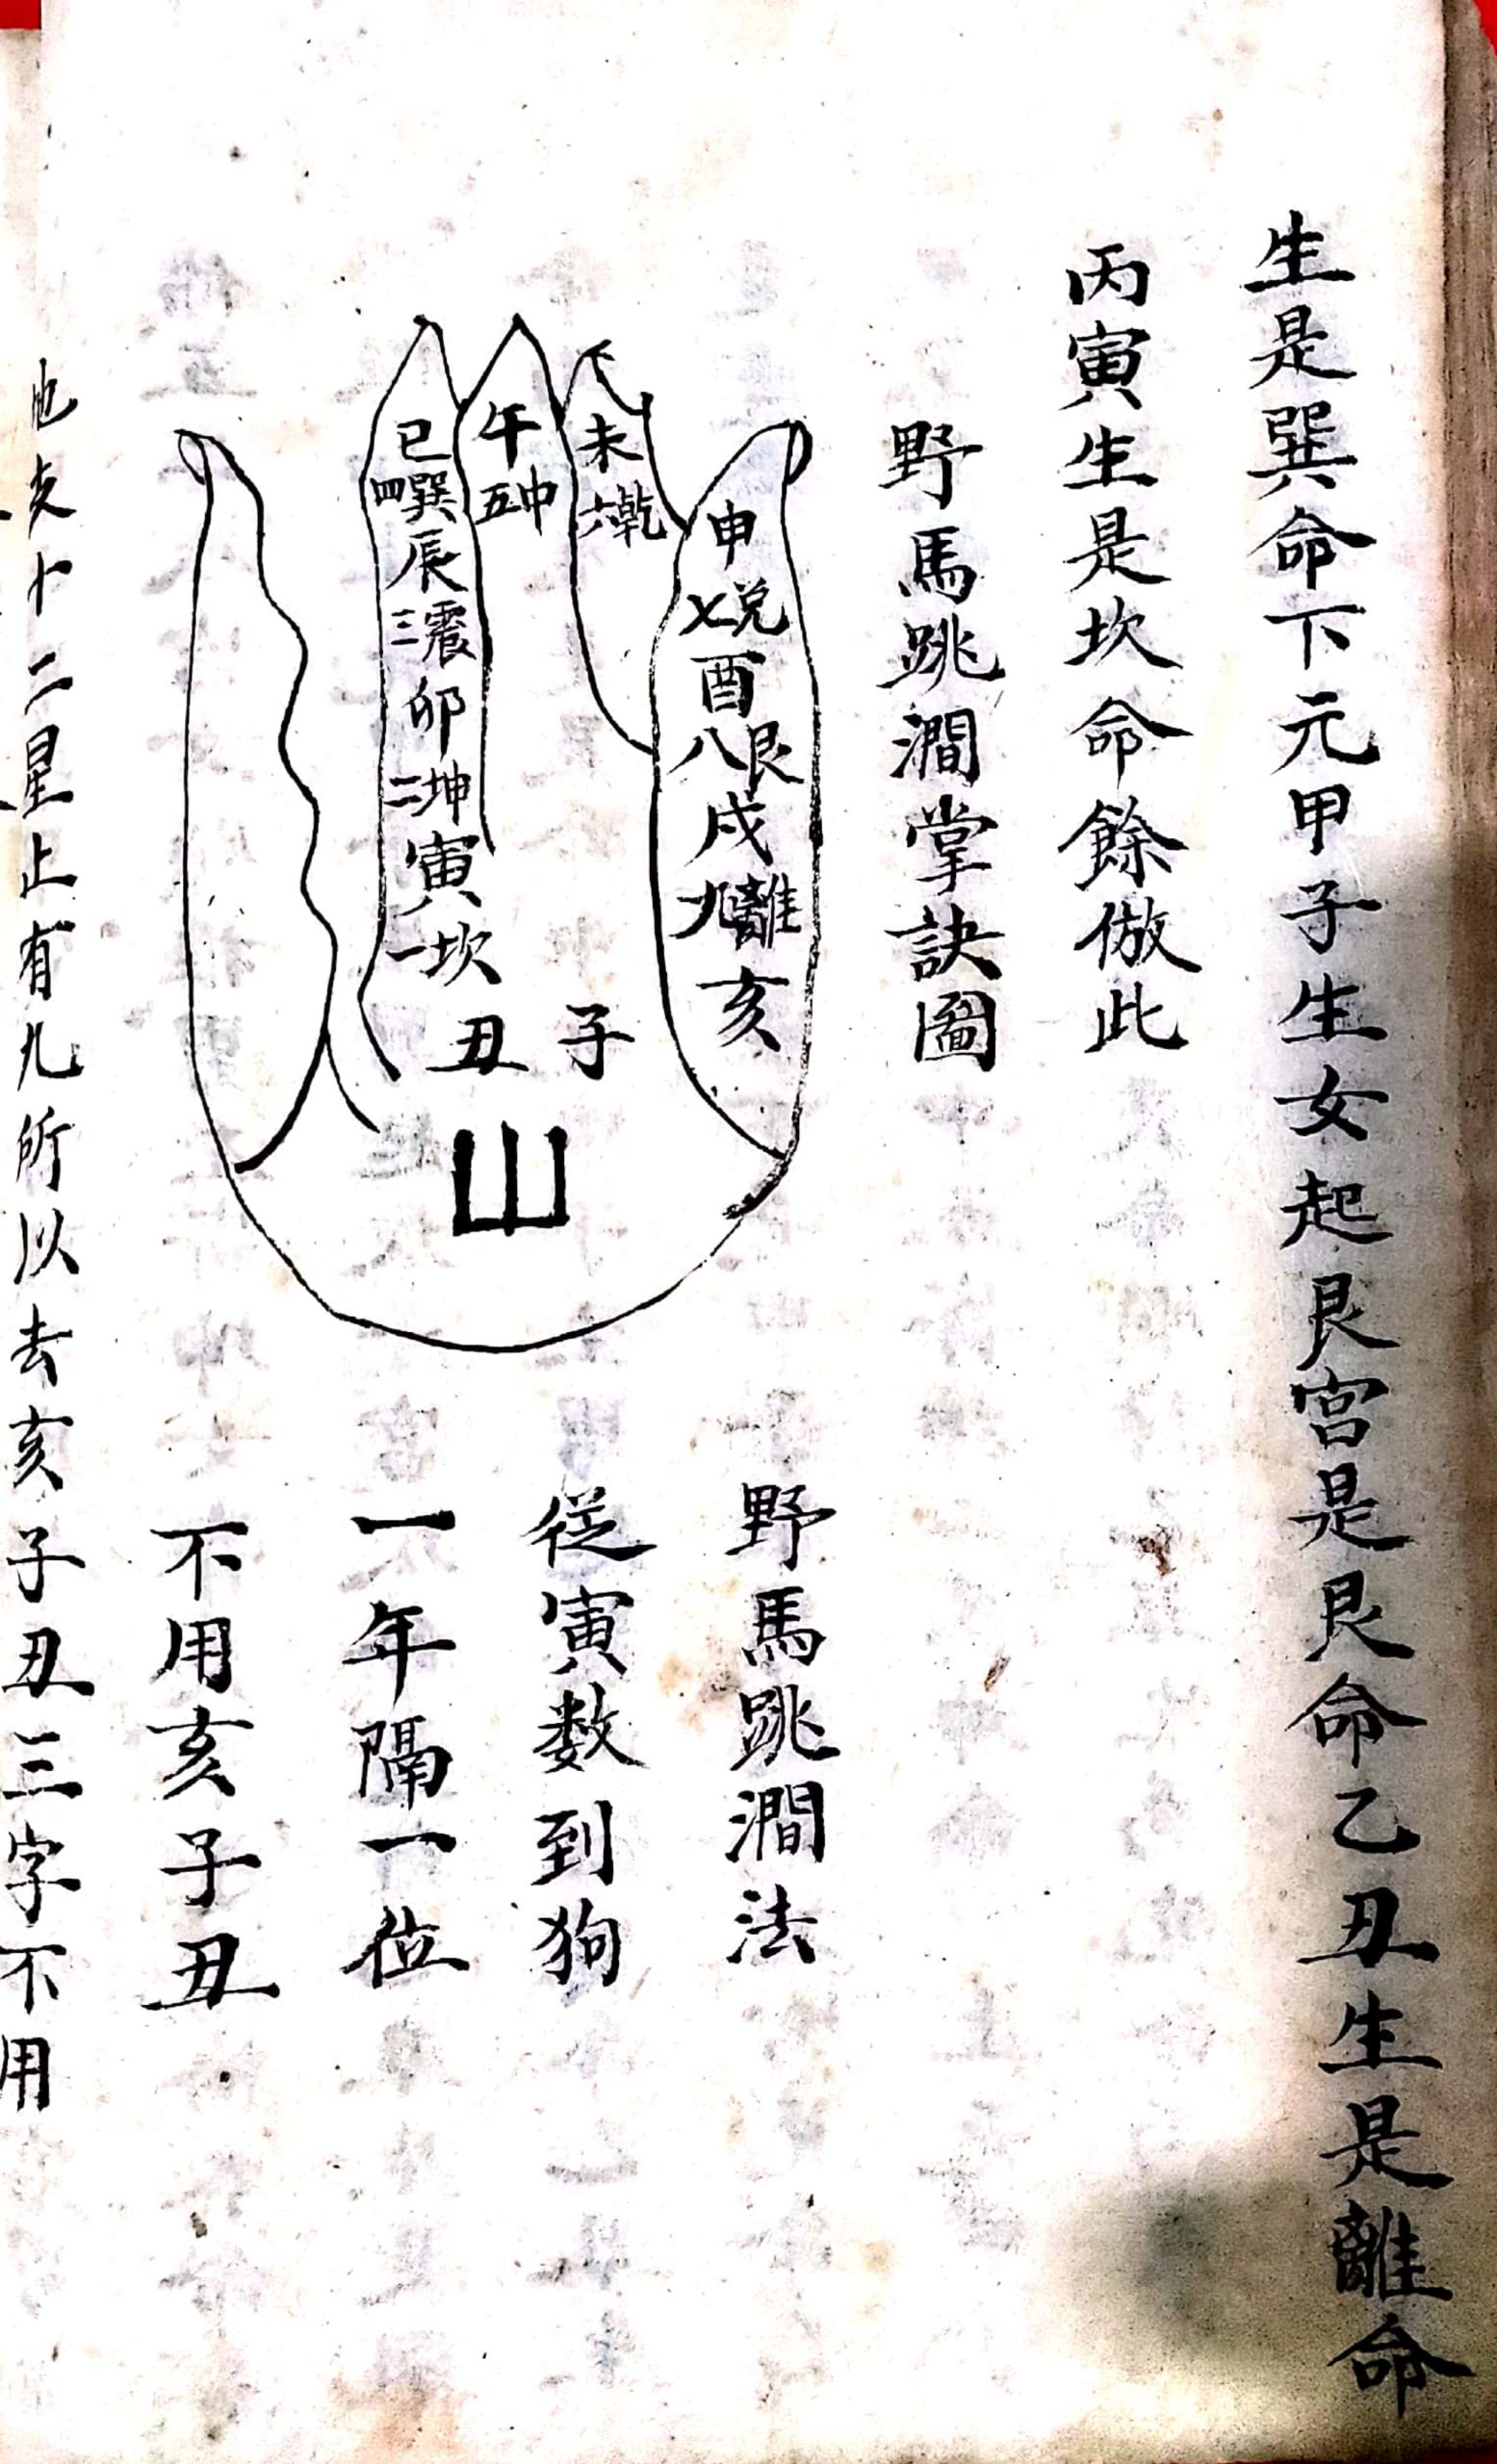 生是巽命下元甲子生女起艮宮是艮命乙丑生是離命
丙寅生是坎命餘倣此
野馬跳澗掌訣圖
申
七兑
酉
八艮
戌
九離
亥
未
六乾
午
五中
巳
四巽
辰
三震
卯
二坤
寅
一坎
丑
子
山
野馬跳澗法
従寅数到狗
一年隔一位
不用亥子丑
十二星止有九所以去亥子丑三字不用